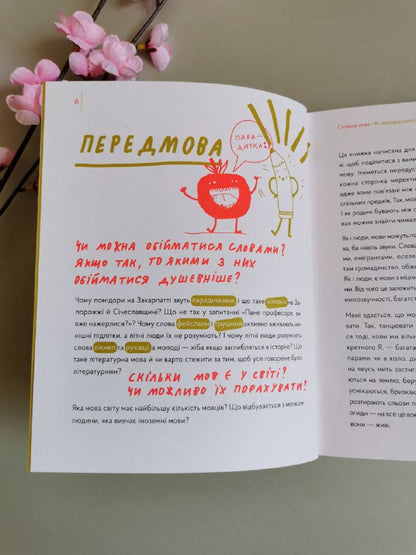 6
ПЕРЕДМОВА
ПАРА-
ДИЧКА?
ЧИ МОЖНА ОБІЙМАТИСЯ СЛОВАМИ?
ЯКЩО ТАК, ТО ЯКИМИ З НИХ
ОБІЙМАТИСЯ ДУШЕВНІШЕ?
Чому помідори на Закарпатті звуть парадичками, і що таке на За-
порожжі й Січеславщині? Що не так у запитанні «Пане професоре, ви
вже нажерлися?» Чому слова фейспалм і трушний активно вживають ни-
нішні підлітки, а літні люди їх не розуміють? Чому літні люди розуміють
слова лікнеп та рухівці, а молоді — хіба якщо заглибляться в історію? Що
таке літературна мова й чи варто стежити за тим, щоб усе говорене було
літературним?
СКІЛЬКИ МОВ Є У СВІТІ?
ЧИ МОЖЛИВО ЇХ ПОРАХУВАТИ?
Яка мова світу має найбільшу кількість мовців? Що відбувається з мозком
людини, яка вивчає іноземні мови?
Спільна мова • Як народжуються
Ця книжка написана для
й, щоб поділитися з вами
мову. Ітиметься передусім
кожна сторінка мерехти
адже вони пов'язані між
спільних предків. Так, мов
І як родичі бувають між со
вих мов можна знайти чимал
Як і люди, мови можуть по
ба, на бути звуки. Слова
ки, емігранти, оселя
там громадянство, обжи
Як і люди, є мови з міцни
ми. Від цього де залежить
милозвучності, багатс
Мені здається, що мо
ють. Так, танцювати
ся тоді, коли ми вільн
кретного Я, — багат
парами чи в коло, д
на якусь мить застиг
ються на землю, бере
усміхаються, бризкаю
розтирають сльози п
огиди — на вид і
вони — живі.